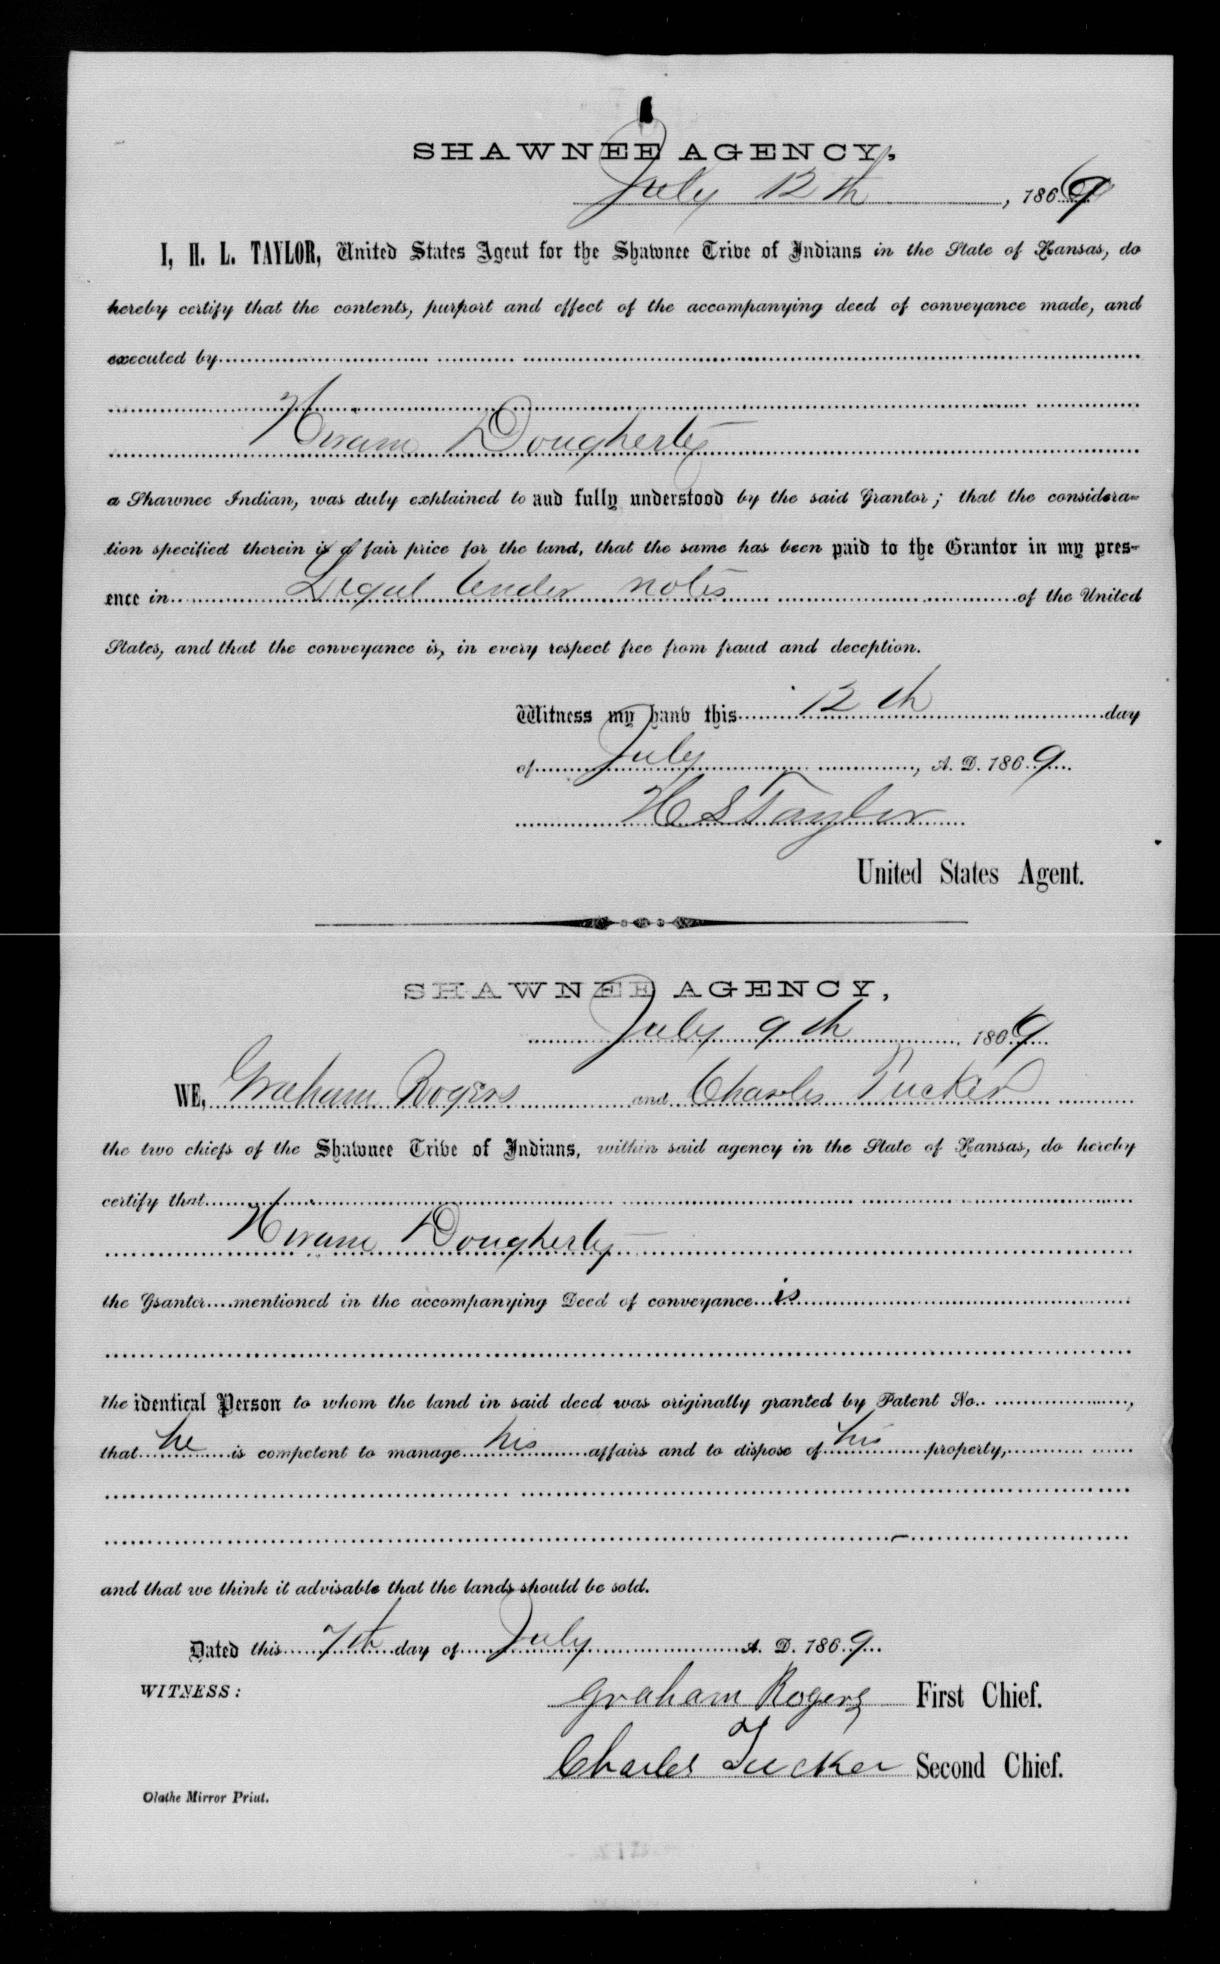 SHAWNEE AGENCY,
July 12th, 1869
I, H. L. TAYLOR, United States Agent for the Shawnee Tribe of Indians in the State of Kansas, do
hereby certify that the contents, purport and effect of the accompanying deed of conveyance made, and
executed by
Hiram Dougherty
a Shawnee Indian, was duly explained to and fully understood by the said Grantor; that the considera-
tion specified therein is a fair price for the land, that the same has been paid to the Grantor in my pres-
ence in Legal tender notes of the United
States, and that the conveyance is, in every respect free from fraud and deception.
Witness my hand this 12th day
of July, A. D. 1869
H L Taylor
United States Agent.
SHAWNEE AGENCY,
July 9th, 1869
WE, Graham Rogers and Charles Tucker
the two chiefs of the Shawnee Tribe of Indians, within said agency in the State of Kansas, do hereby
certify that
Hiram Dougherty
the Grantor mentioned in the accompanying Deed of conveyance is
the identical Person to whom the land in said deed was originally granted by Patent No.,
that he is competent to manage his affairs and to dispose of his property,
and that we think it advisable that the lands should be sold.
Dated this 7th day of July A. D. 1869
WITNESS:
Graham Rogers First Chief.
Charles Tucker Second Chief.
Olathe Mirror Print.